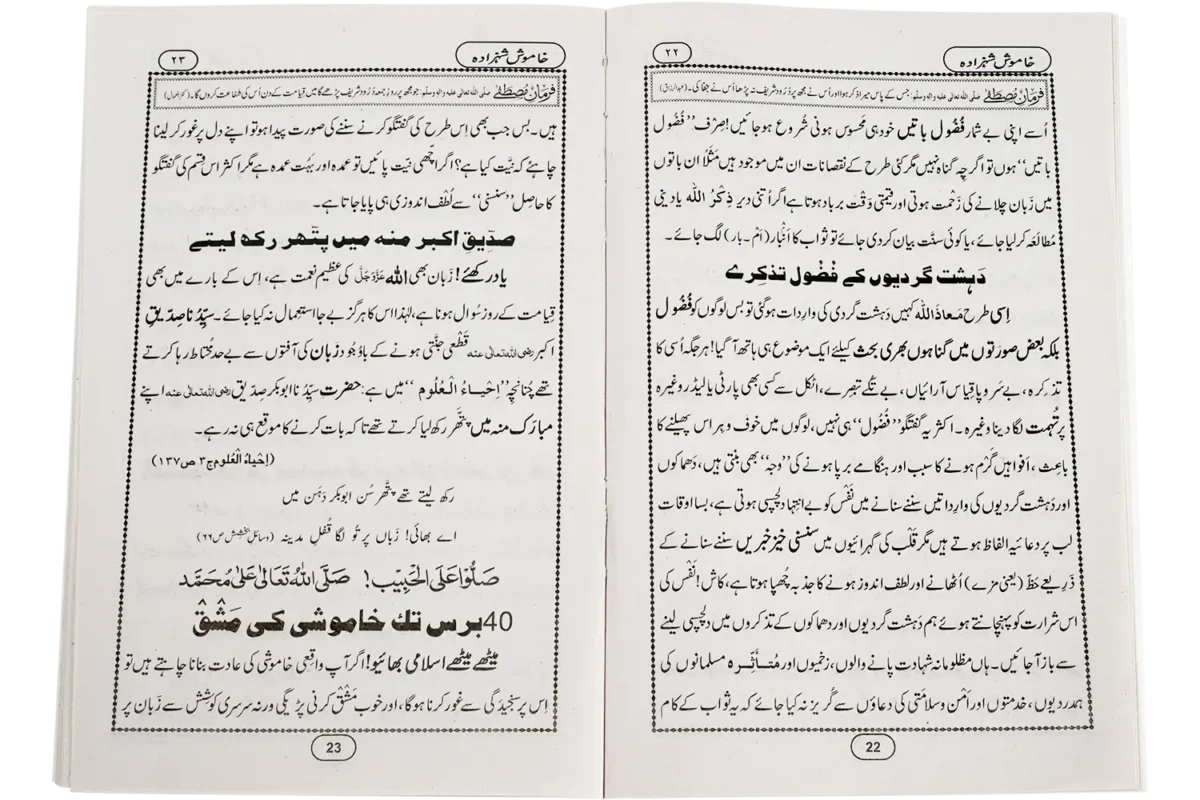 خاموش شہزادہ
۲۲
فرمانِ مصطفٰے صلی اللہ تعالیٰ علیہ والہ وسلم: جس کے پاس میرا ذکر ہوا اور اُس نے مجھ پر دُرُود شریف نہ پڑھا اُس نے جفا کی۔ (عبدالرزاق)
اُسے اپنی بے شمار فُضُول باتیں خود ہی محسوس ہونی شُروع ہو جائیں! صِرْف ’’فُضُول
باتیں‘‘ ہوں تو اگرچہ گناہ نہیں مگر کئی طرح کے نقصانات ان میں موجود ہیں مَثَلاً ان باتوں
میں زَبان چلانے کی زَحْمت ہوتی اور قیمتی وَقْت برباد ہوتا ہے اگر اُتنی دیر ذِکْرُ اللہ یا دینی
مُطالَعہ کر لیا جائے، یا کوئی سنّت بیان کر دی جائے تو ثواب کا اَنبار (اَم۔بار) لگ جائے۔
دَہشت گردیوں کے فُضُول تذکِرے
اِسی طرح مَعاذَ اللہ کہیں دَہشت گردی کی وارِدات ہو گئی تو بس لوگوں کو فُضُول
بلکہ بعض صورتوں میں گناہوں بھری بَحث کیلئے ایک موضوع ہی ہاتھ آ گیا! ہر جگہ اُسی کا
تذکِرہ، بے سَر و پا قِیاس آرائیاں، بے تُکے تبصِرے، اٹکل سے کسی بھی پارٹی یا لیڈر وغیرہ
پر تُہمت لگا دینا وغیرہ۔ اکثر یہ گفتگو ’’فُضُول‘‘ ہی نہیں، لوگوں میں خوف و ہِراس پھیلنے کا
باعِث، اَفواہیں گَرْم ہونے کا سبب اور ہنگامے برپا ہونے کی ’’وجہ‘‘ بھی بنتی ہیں، دھماکوں
اور دَہشت گردیوں کی وارِداتیں سننے سنانے میں نَفْس کو بے انتِہا دلچسپی ہوتی ہے، بسا اوقات
لب پر دعائیہ الفاظ ہوتے ہیں مگر قَلْب کی گہرائیوں میں سنسنی خیز خبریں سننے سنانے کے
ذَرِیعے حَظّ (یعنی مزے) اُٹھانے اور لطف اندوز ہونے کا جذبہ چُھپا ہوتا ہے، کاش! نَفْس کی
اس شرارت کو پہچانتے ہوئے ہم دَہشت گردیوں اور دھماکوں کے تذکروں میں دلچسپی لینے
سے باز آ جائیں۔ ہاں مظلومانہ شہادت پانے والوں، زخمیوں اور مُتَأَثِّرہ مسلمانوں کی
ہمدردیوں، خدمتوں اور اَمْن و سلامتی کی دعاؤں سے گُریز نہ کیا جائے کہ یہ ثواب کے کام
22
خاموش شہزادہ
۲۳
فرمانِ مصطفٰے صلی اللہ تعالیٰ علیہ والہ وسلم: جو مجھ پر روزِ جمعہ دُرُود شریف پڑھے گا میں قیامت کے دن اُس کی شفاعت کروں گا۔ (کنزالعمال)
ہیں۔ بس جب بھی اِس طرح کی گفتگو کرنے سننے کی صورت پیدا ہو تو اپنے دل پر غور کر لینا
چاہئے کہ نیّت کیا ہے؟ اگر اچّھی نیّت پائیں تو عمدہ اور بہُت عمدہ ہے مگر اکثر اس قسم کی گفتگو
کا حاصِل ’’سنسنی‘‘ سے لُطْف اندوزی ہی پایا جاتا ہے۔
صدّیقِ اکبر منہ میں پتّھر رکھ لیتے
یاد رکھئے! زَبان بھی اللہ عَزَّوَجَلَّ کی عظیم نعمت ہے، اِس کے بارے میں بھی
قِیامت کے روز سُوال ہونا ہے، لہٰذا اس کا ہرگز بے جا استِعمال نہ کیا جائے۔ سیِّدُنا صِدّیقِ
اکبر رضی اللہ تعالیٰ عنہ قَطْعی جنّتی ہونے کے باوُجُود زَبان کی آفتوں سے بے حد مُحتاط رہا کرتے
تھے چُنانچِہ ’’اِحْیاءُ الْعُلُوم‘‘ میں ہے: حضرتِ سیِّدُنا ابوبکر صِدّیق رضی اللہ تعالیٰ عنہ اپنے
مبارَک منہ میں پتّھر رکھ لیا کرتے تھے تا کہ بات کرنے کا موقع ہی نہ رہے۔
(اِحْیاءُ الْعُلُوم ج۳ ص۱۳۷)
رکھ لیتے تھے پتّھر سُن ابوبکر دَہَن میں
اے بھائی! زَباں پر تُو لگا قُفلِ مدینہ (وسائلِ بخشش ص۶۶)
صَلُّوْا عَلَی الْحَبِیْب! صَلَّی اللہُ تَعَالٰی عَلٰی مُحَمَّد
40 برس تک خاموشی کی مَشْق
میٹھے میٹھے اسلامی بھائیو! اگر آپ واقِعی خاموشی کی عادت بنانا چاہتے ہیں تو
اِس پر سنجیدَگی سے غور کرنا ہوگا، اور خوب مَشْق کرنی پڑیگی ورنہ سرسری کوشِش سے زَبان پر
23